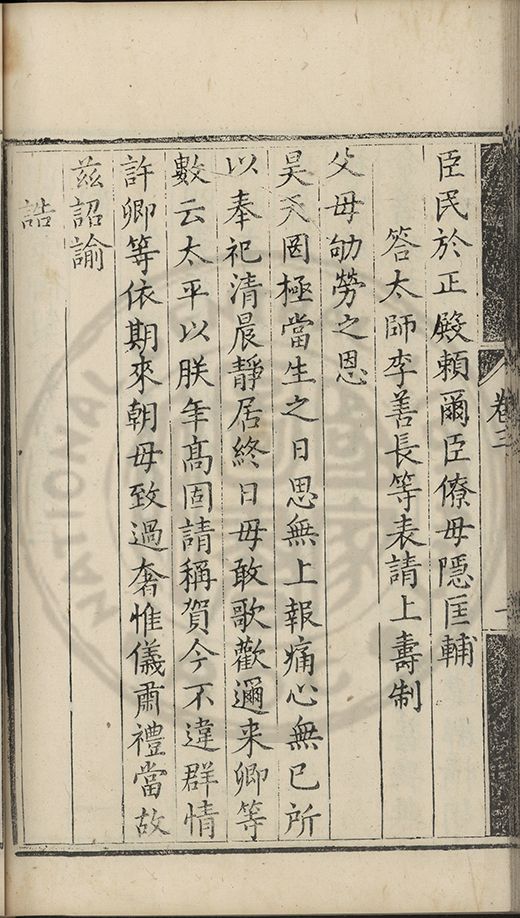 卷三
一
臣民於正殿賴爾臣僚毋隱匡輔
答太師李善長等表請上壽制
父母劬勞之恩
昊天罔極當生之日思無上報痛心無已所
以奉祀清晨靜居終日毋敢歌歡邇来卿等
數云太平以朕年髙固請稱賀今不違群情
許卿等依期來朝毋致過奢惟儀肅禮當故
茲詔諭
誥